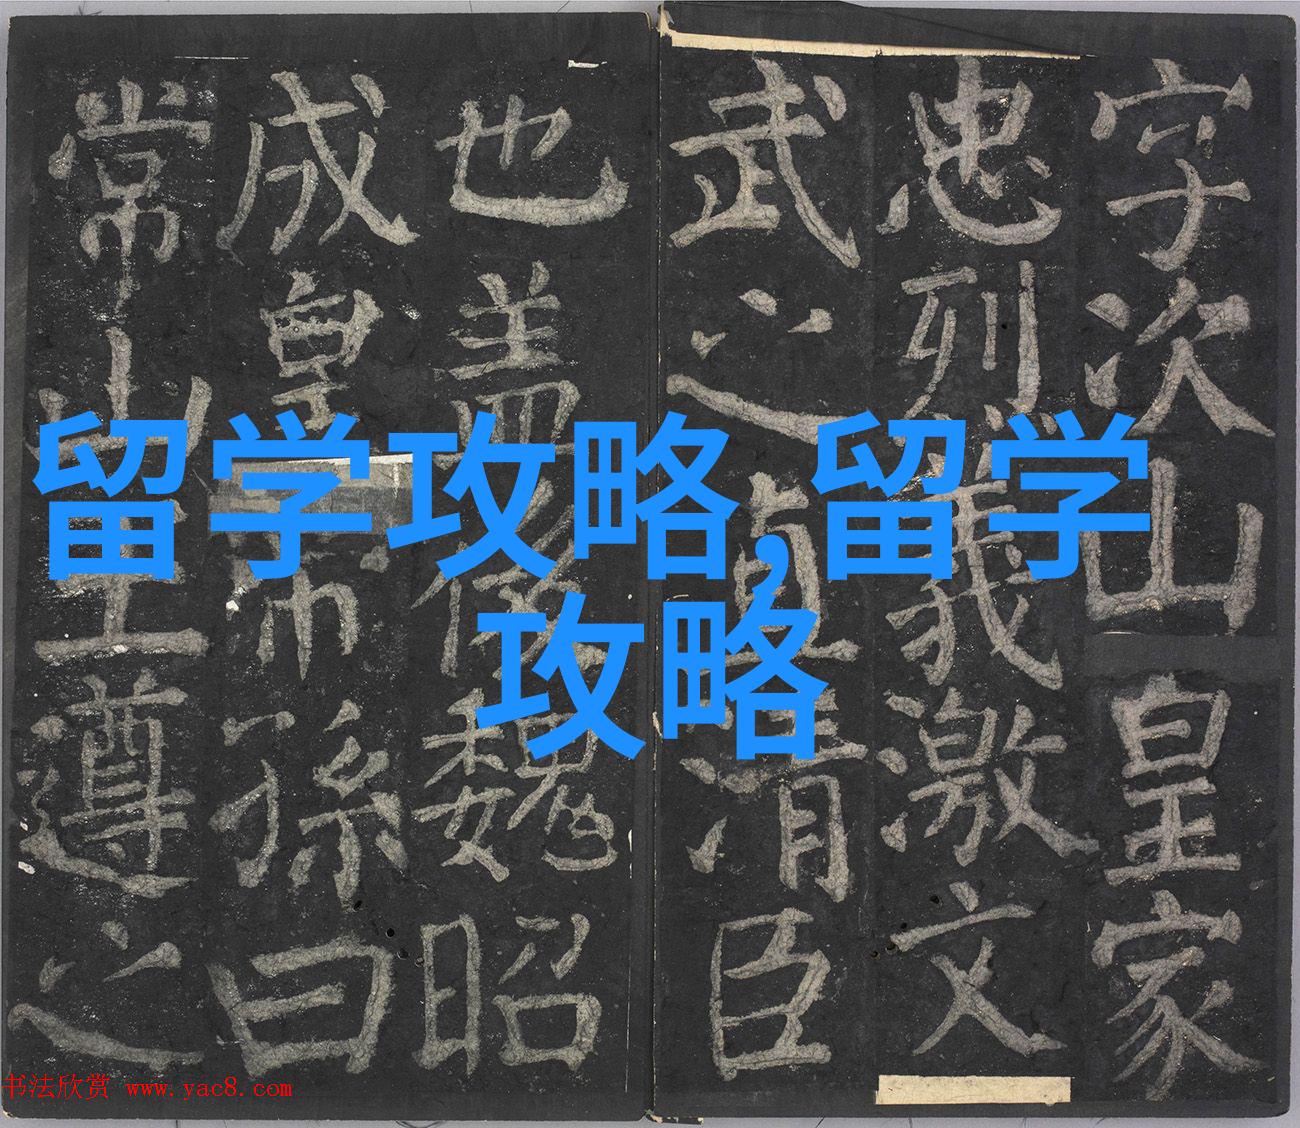 留学攻略,留学
攻略
字次山皇家
忠烈義激文
武之直清臣
也盖後魏昭
成皇帝孫曰
常山王遵之
书法欣赏 www.yac8.com